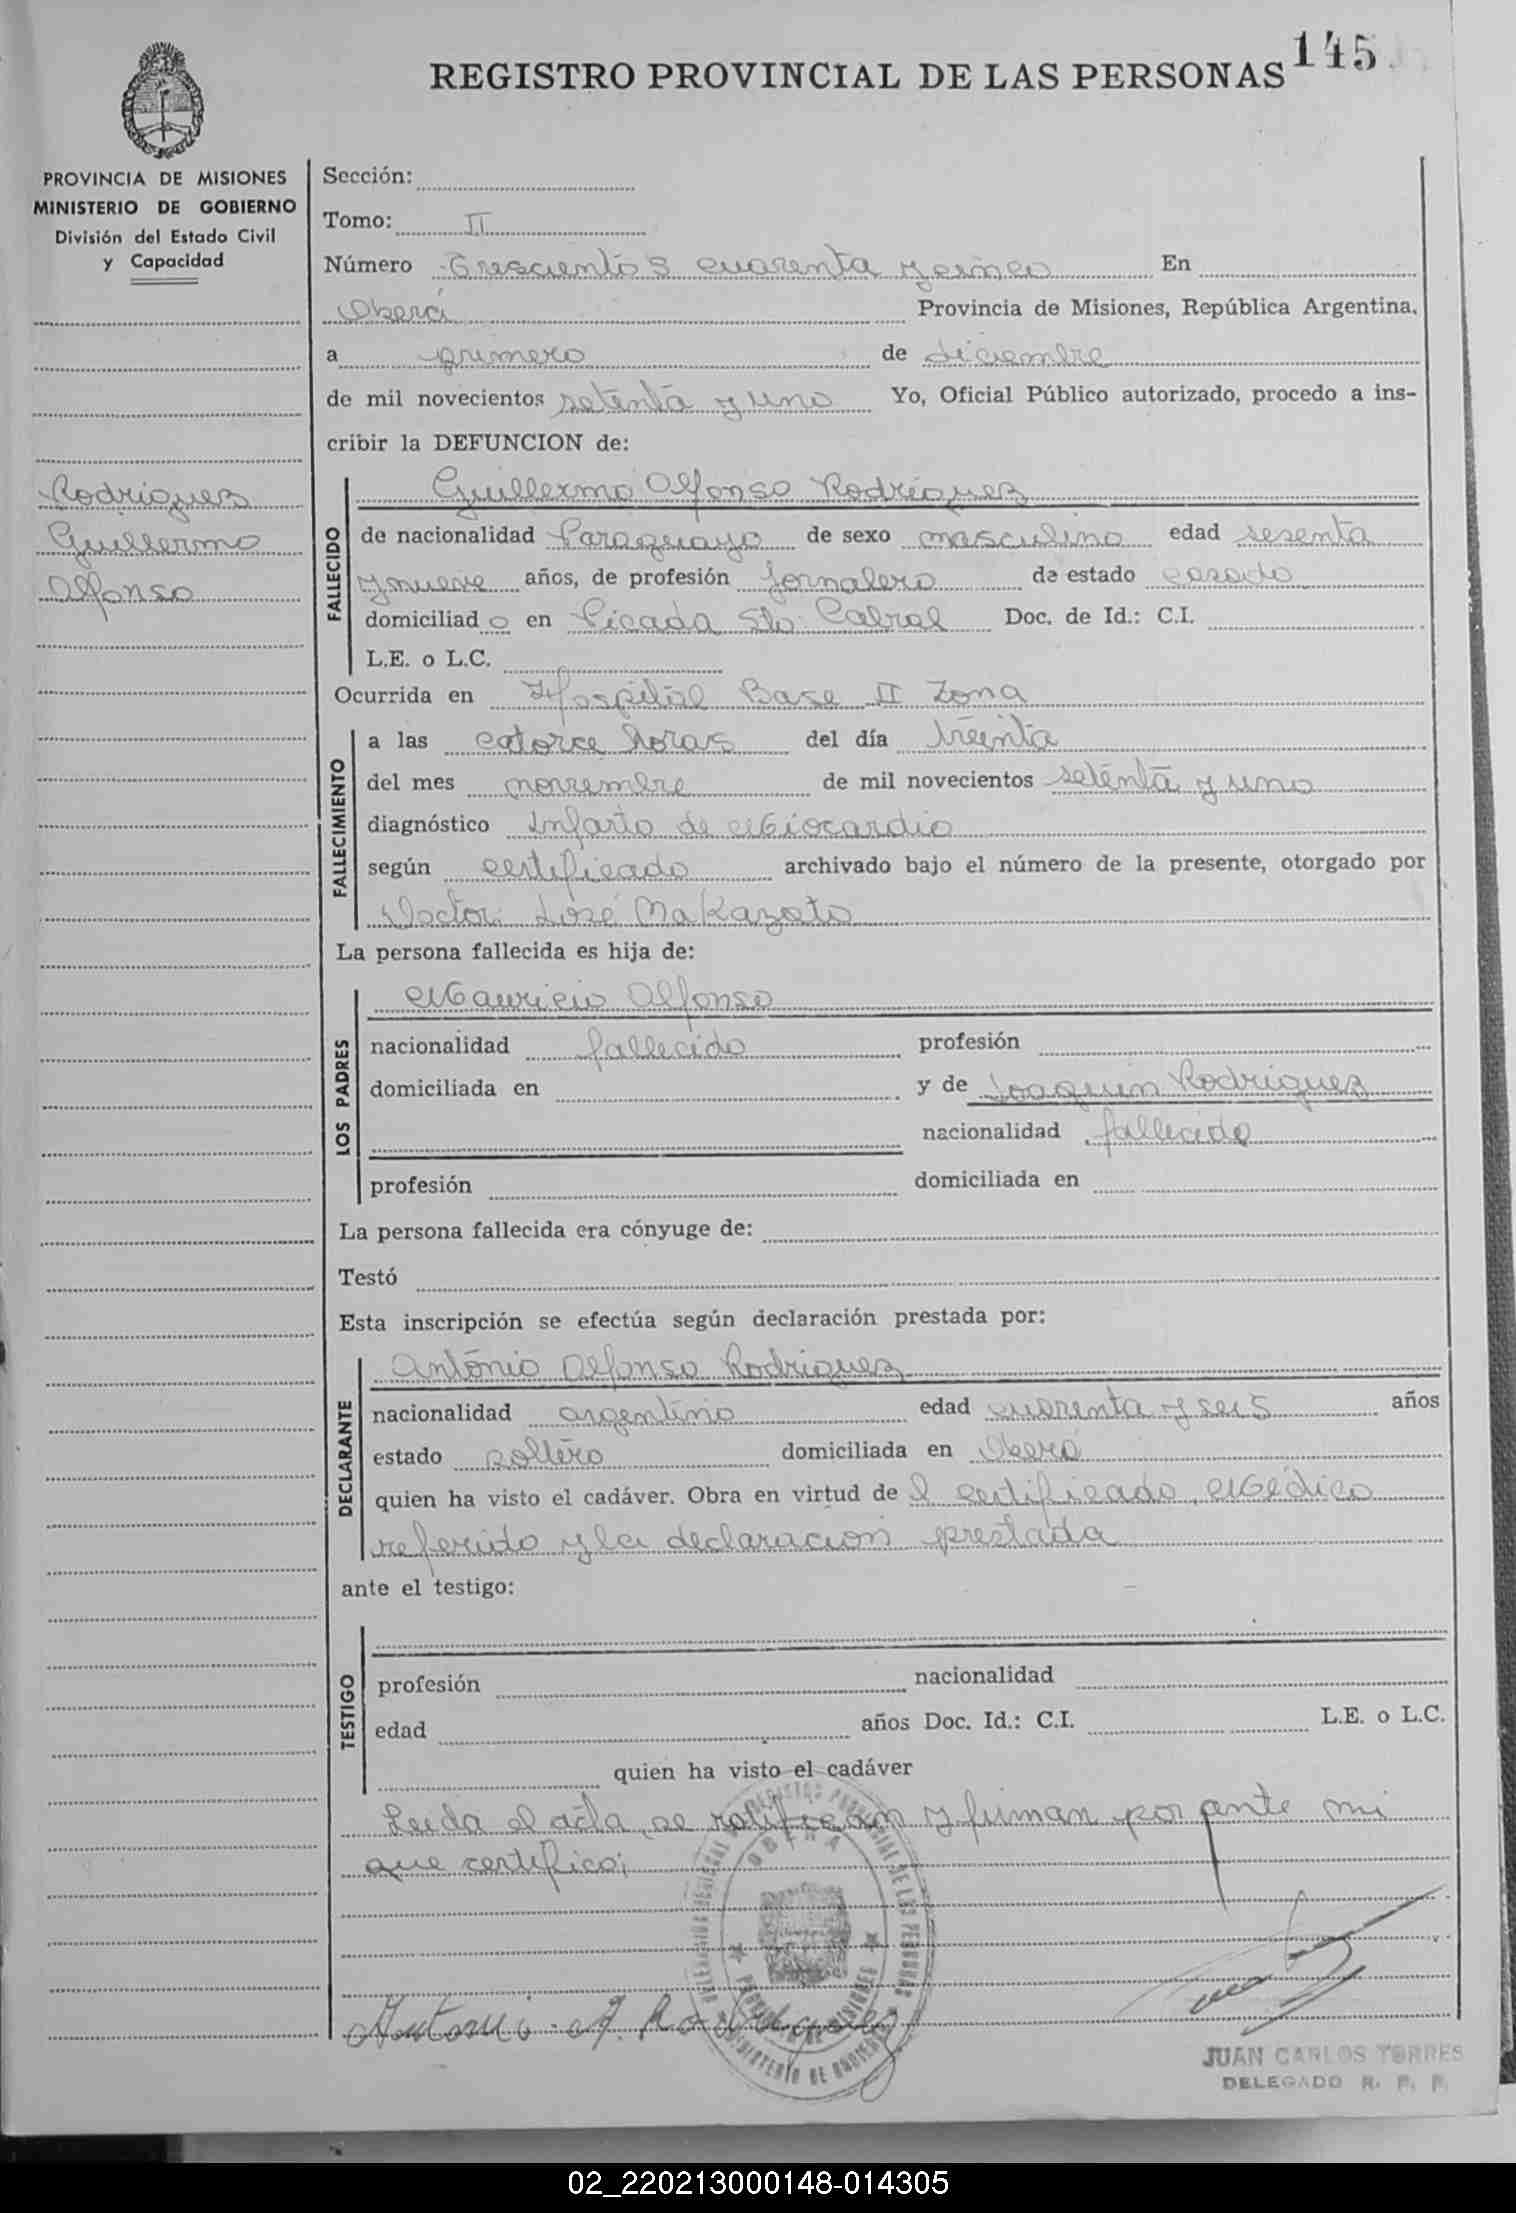 145
REGISTRO PROVINCIAL DE LAS PERSONAS
PROVINCIA DE MISIONES
MINISTERIO DE GOBIERNO
División del Estado Civil
y Capacidad
Rodriguez
Guillermo
Alfonso
Sección:
Tomo: II
Número Trescientos cuarenta y cinco En
Oberá Provincia de Misiones, República Argentina,
a primero de diciembre
de mil novecientos setenta y uno Yo, Oficial Público autorizado, procedo a ins-
cribir la DEFUNCION de:
FALLECIDO
Guillermo Alfonso Rodríguez
de nacionalidad Paraguayo de sexo masculino edad sesenta
y nueve años, de profesión Jornalero de estado casado
domiciliad o en Picada Sto. Cabral Doc. de Id.: C.I.
L.E. o L.C.
Ocurrida en Hospital Base II Zona
FALLECIMIENTO
a las catorce horas del día treinta
del mes noviembre de mil novecientos setenta y uno
diagnóstico Infarto de Miocardio
según certificado archivado bajo el número de la presente, otorgado por
Doctor José Makazato
La persona fallecida es hija de:
LOS PADRES
Mauricio Alfonso
nacionalidad fallecido profesión
domiciliada en y de Joaquin Rodriguez
nacionalidad fallecido
profesión domiciliada en
La persona fallecida era cónyuge de:
Testó
Esta inscripción se efectúa según declaración prestada por:
DECLARANTE
Antonio Alfonso Rodriguez
nacionalidad argentino edad cuarenta y seis años
estado soltero domiciliada en Oberá
quien ha visto el cadáver. Obra en virtud de l certificado Médico
referido y la declaración prestada
ante el testigo:
TESTIGO
profesión nacionalidad
edad años Doc. Id.: C.I. L.E. o L.C.
quien ha visto el cadáver
Leida el acta, se ratifican y firman por ante mi
que certifico;
OBERA
PROVINCIA DE MISIONES
Antonio A. Rodriguez
JUAN CARLOS TORRES
DELEGADO R. P. P.
02_220213000148-014305